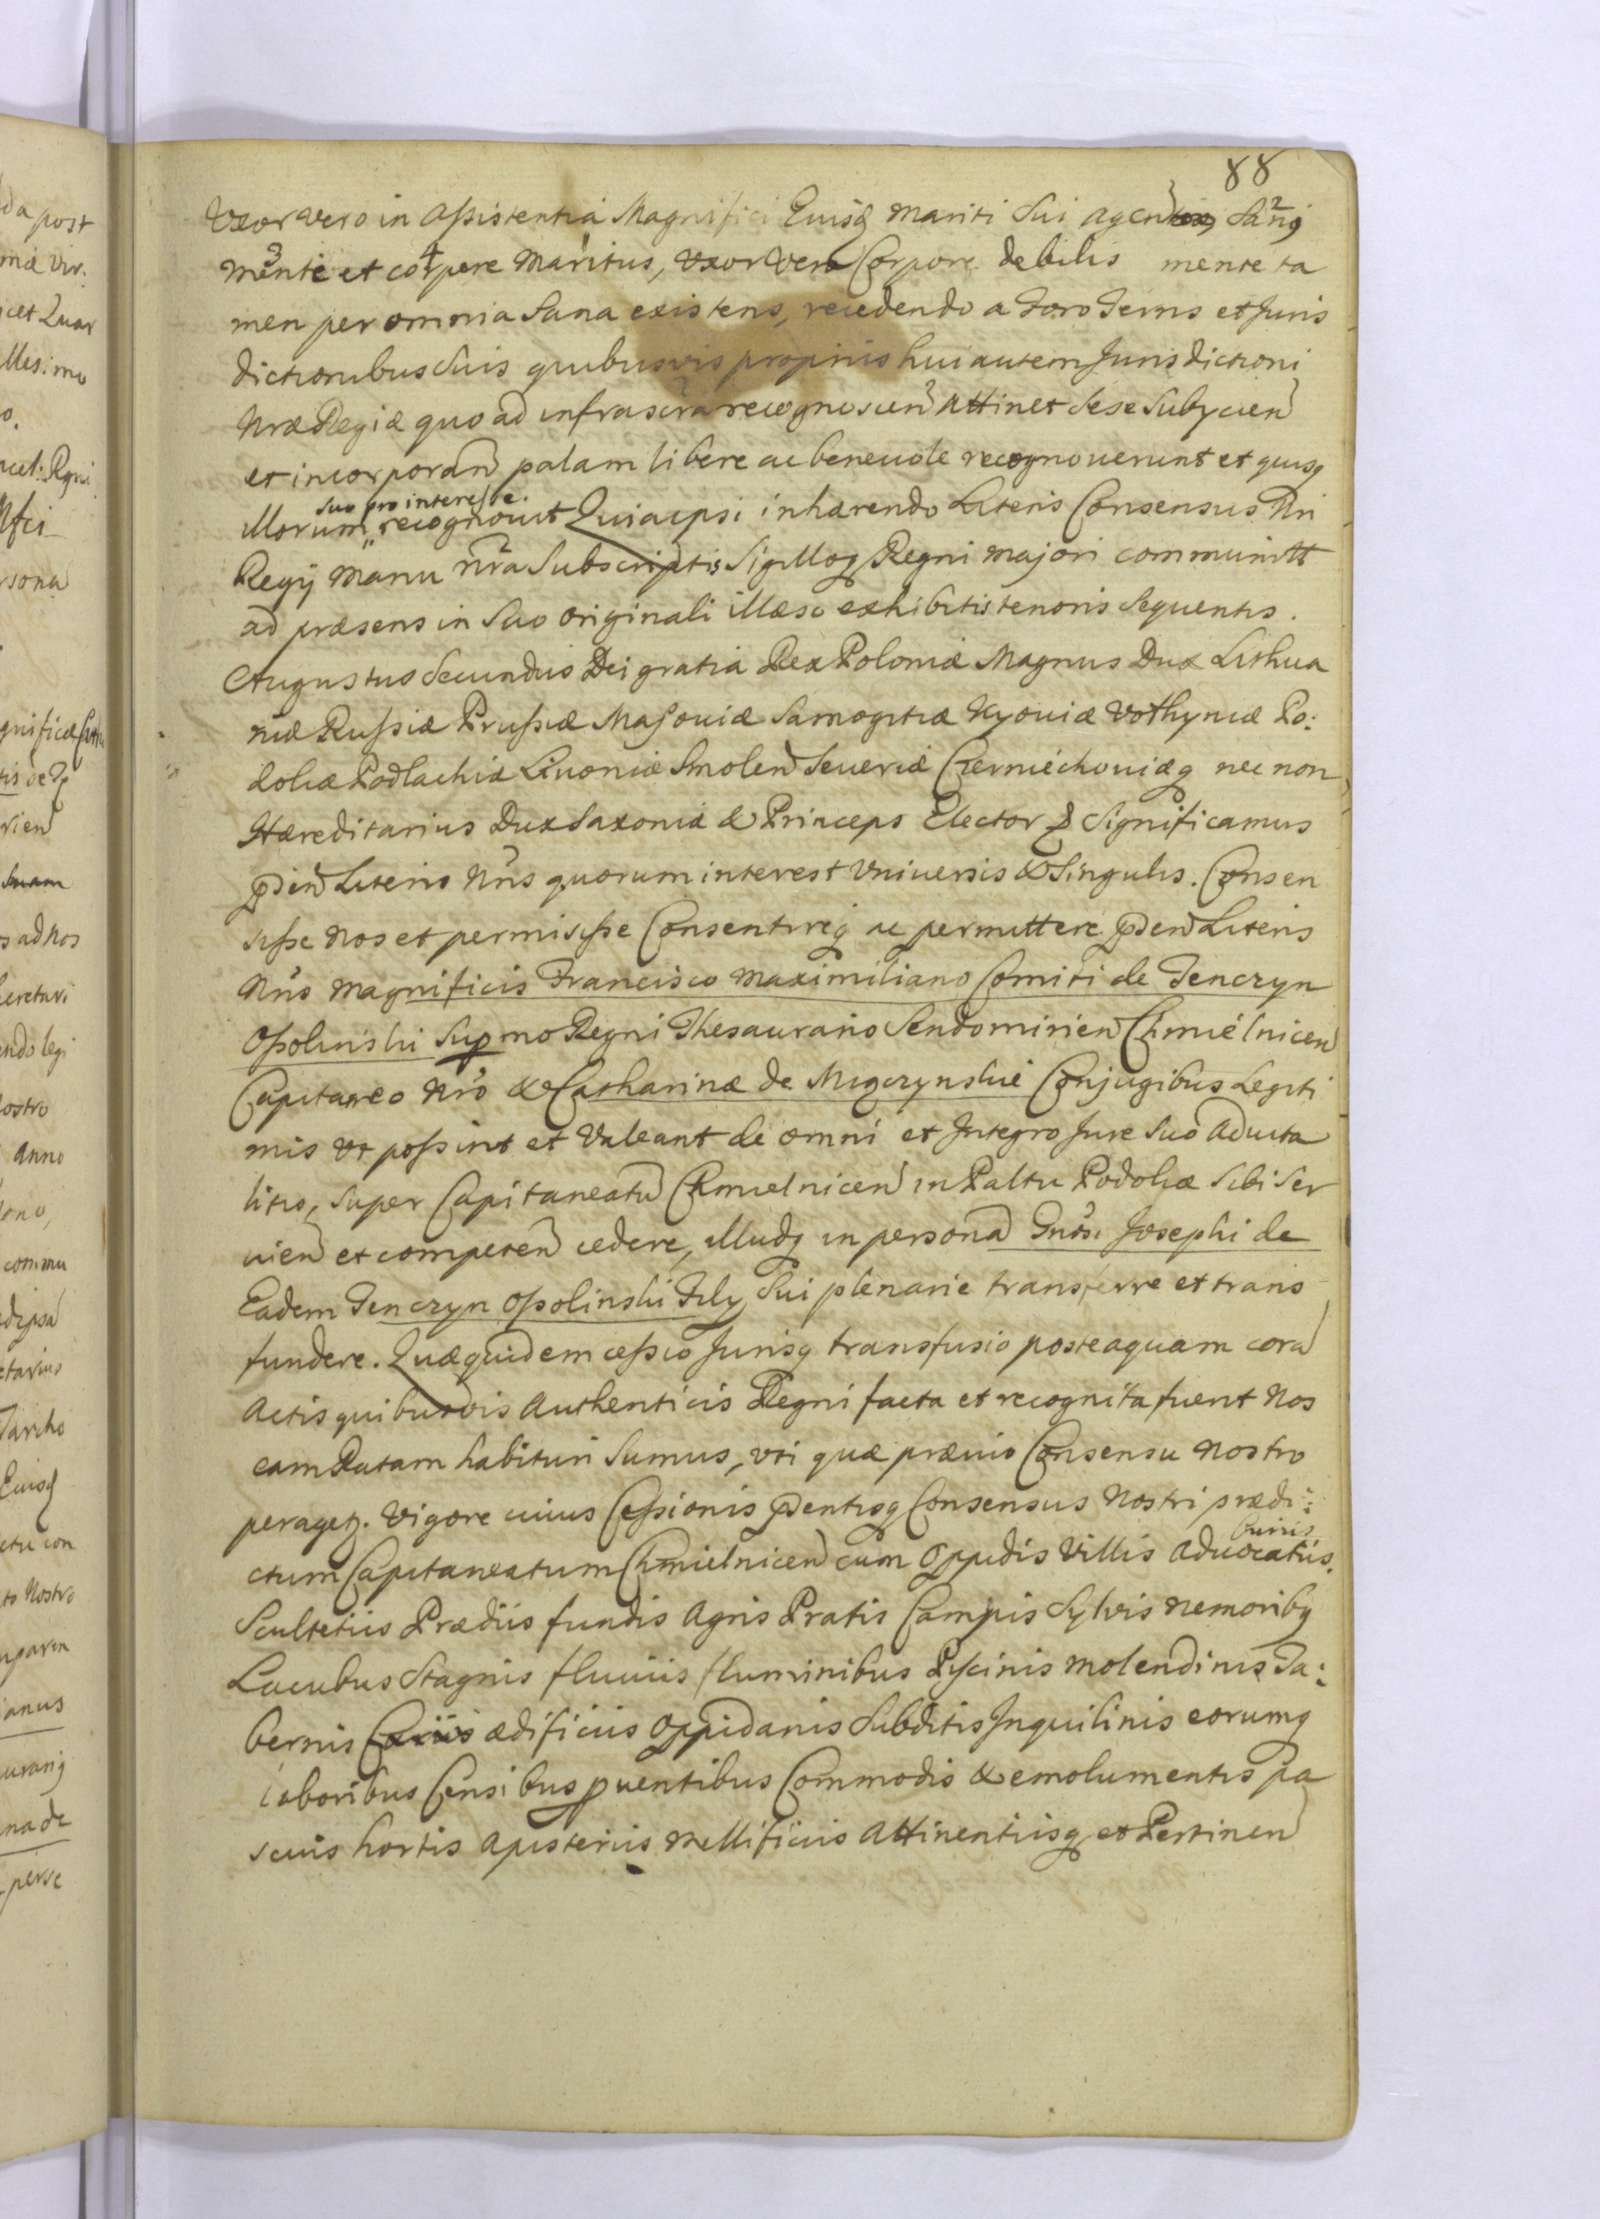 88
Uxor vero in Assistentia Magnifici Eiusd Mariti Sui agen Sang
mente et corpere Maritus, Uxor vero Corpore debilis mente ta
men per omnia Sana existens, recedendo a Foro Terris et Juris
dictionibus Suis quibusvis propriis huic autem Jurisdictioni
Nræ Regiæ quo ad infrascra recognoscen attinet Sese Subycien
et incorporan palam libere ac beneuole recognouerunt et quisq
suo pro interesse.
Illorum recognouit Quia ipsi inhærendo Literis Consensus Nri
Regÿ Manu nra Subscriptis Sigilloq Regni majori communitt
ad præsens in Suo originali illæso exhibitis tenoris Sequentis.
Augustus Secundus Dei gratia Rex Poloniæ Magnus Dux Lithua
niæ Russiæ Prussiæ Masouiæ Samogitiæ Kyouiæ Volhyniæ Po:
doliæ Podlachiæ Liuoniæ Smolen Seueriæ Czerniechouiæq nec non
Hæreditarius Dux Saxoniæ & Princeps Elector & Significamus
pden Literis Nris quorum interest Vniuersis & Singulis. Consen
sisse Nos et permisisse Consentireq ac permittere pden Literis
Nris Magnificis Francisco Maximiliano Comiti de Tenczyn
Ossolinski Supmo Regni Thesaurario Sendomirien Chmielnicen
Capitaneo Nro & Catharinæ de Miączynskie Conjugibus Legiti
mis Vt possint et Valeant de omni et Integro Jure Suo Aduita
litio, Super Capitaneatu Chmielnicen in Paltu Podoliæ Sibi Ser
uien et competen cedere, illudq in persona Gnosi Josephi de
Eadem Tenczyn Ossolinski Fily Sui plenarie transferre et trans
fundere. Quæquidem cessio Jurisq transfusio posteaquam cora
Actis quibusvis Authenticis Regni facta et recognita fuerit Nos
eam Ratam habituri Sumus, vti quæ præuio Consensu Nostro
peragetz. Vigore cuius Cessionis pdentisq Consensus Nostri prædi:
ctum Capitaneatum Chmielnicen cum Oppidis Villis Aduocatiis.
Curiis
Scultetiis Prædiis fundis Agris Pratis Campis Syluis Nemoribq
Lacubus Stagnis fluuiis fluminibus Piscinis Molendinis Ta:
bernis ædificiis Oppidanis Subditis Inquilinis eorumq
laboribus Censibus puentibus Commodis & emolumentis pa
scuis hortis Apisteriis Mellificiis Attinentiisq et Pertinen